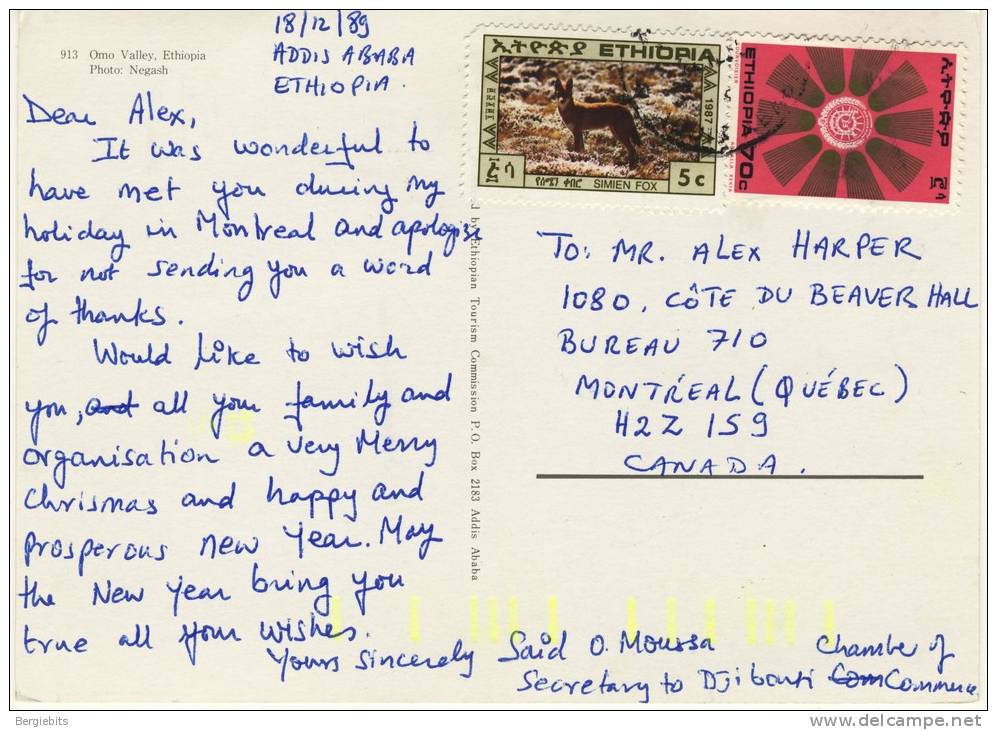 913 Omo Valley, Ethiopia
Photo: Negash
18/12/89
ADDIS ABABA
ETHIOPIA.
Dear Alex,
It was wonderful to
have met you during my
holiday in Montreal and apologise
for not sending you a word
of thanks.
Would like to wish
you, and all your family and
organisation a very Merry
Chrismas and happy and
prosperous new Year. May
the New Year bring you
true all your wishes.
Yours sincerely
Said O. Moussa
Secretary to Djibouti Chamber of
Com Commerce
ኢትዮጵያ ETHIOPIA
1987
የሰሜን ቀበሮ SIMIEN FOX 5c
ETHIOPIA 70c
ኢትዮጵያ
by Ethiopian Tourism Commission P.O. Box 2183 Addis Ababa
TO: MR. ALEX HARPER
1080, CÔTE DU BEAVER HALL
BUREAU 710
MONTRÉAL (QUÉBEC)
H2Z 1S9
CANADA.
Bergiebits
delcampe.net